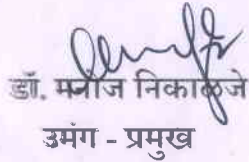 डॉ. मनोज निकाळजे
उमंग - प्रमुख